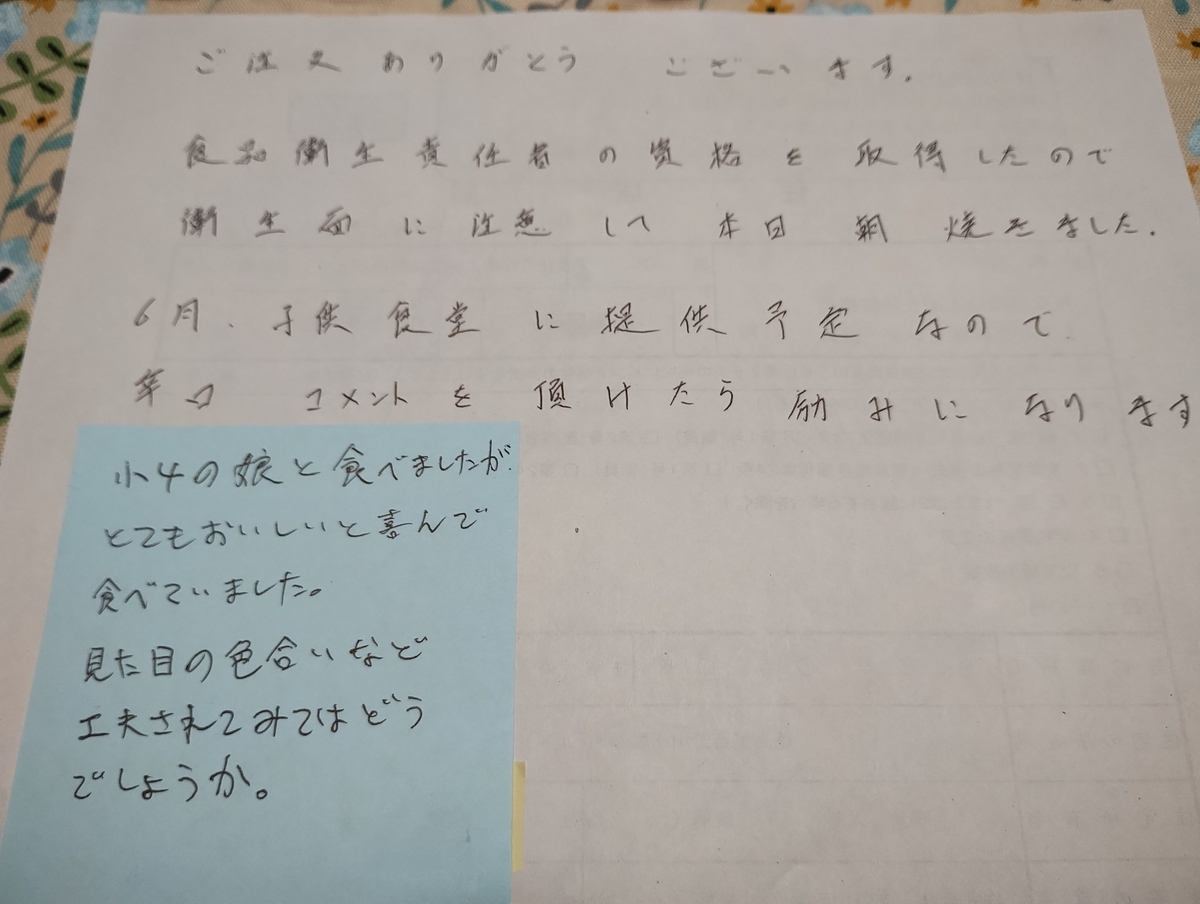 ご注文ありがとう ございます。
食品衛生責任者の資格を 取得したので
衛生面に注意して 本日 朝 焼きました。
6月、子供食堂に提供予定なので
辛口 コメントを頂けたら励みになります
小4の娘と食べましたが、
とてもおいしいと喜んで
食べていました。
見た目の色合いなど
工夫されてみてはどう
でしょうか。